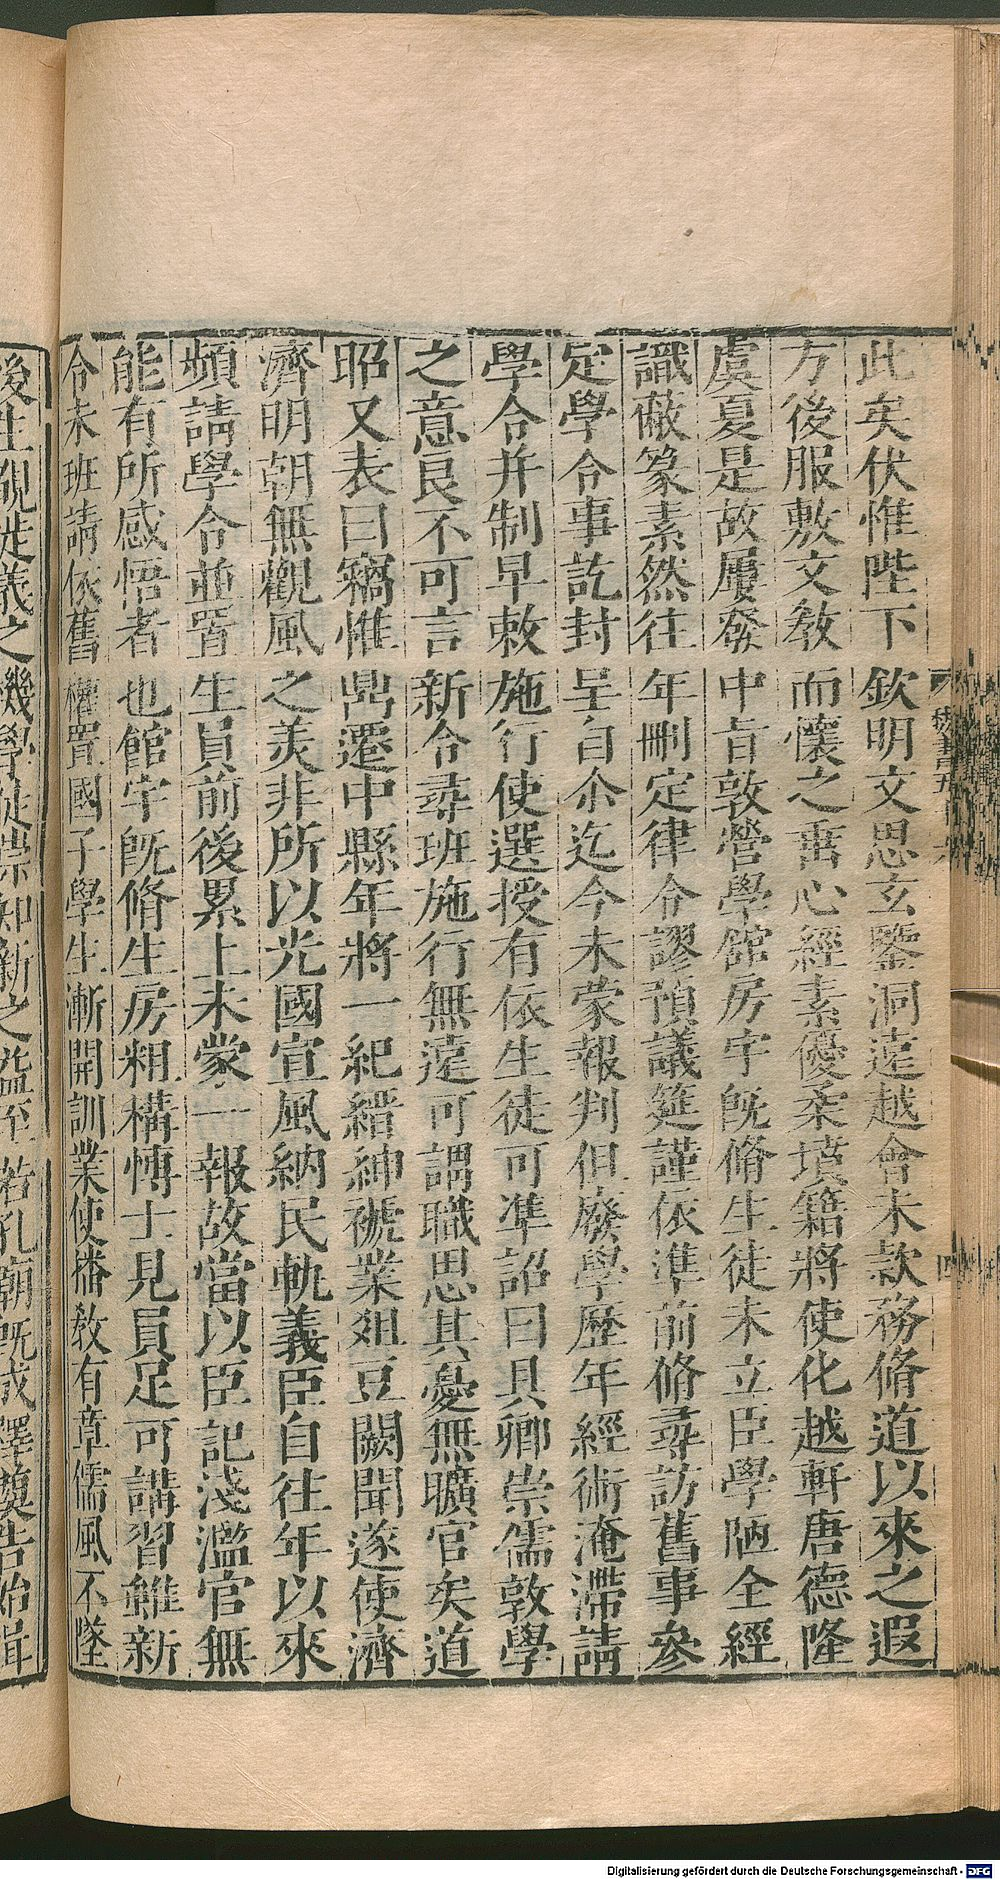 此矣伏惟陛下欽明文思玄鑒洞遠越會未款務脩道以來之遐
方後服敷文教而懷之垂心經素優柔墳籍將使化越軒唐德隆
虞夏是故屢發中旨敦營學館房宇旣脩生徒未立臣學陋全經
識蔽篆素然往年刪定律令謬預議筵謹依準前脩尋訪舊事參
定學令事訖封呈自尒迄今未蒙報判但廢學歷年經術淹滯請
學令并制早敕施行使選授有依生徒可準詔曰具卿崇儒敦學
之意良不可言新令尋班施行無遠可謂職思其憂無曠官矣道
昭又表曰竊惟鼎遷中縣年將一紀縉紳褫業俎豆闕聞遂使濟
濟明朝無觀風之美非所以光國宣風納民軌義臣自往年以來
頻請學令並置生員前後累上未蒙一報故當以臣記淺濫官無
能有所感悟者也館宇旣脩生房粗構博士見員足可講習雖新
令未班請依舊權置國子學生漸開訓業使播敎有章儒風不墜
後生覩徙義之機學徒崇知新之益至若孔廟旣成釋奠告始揖
魏書五十六
四
Digitalisierung gefördert durch die Deutsche Forschungsgemeinschaft - DFG